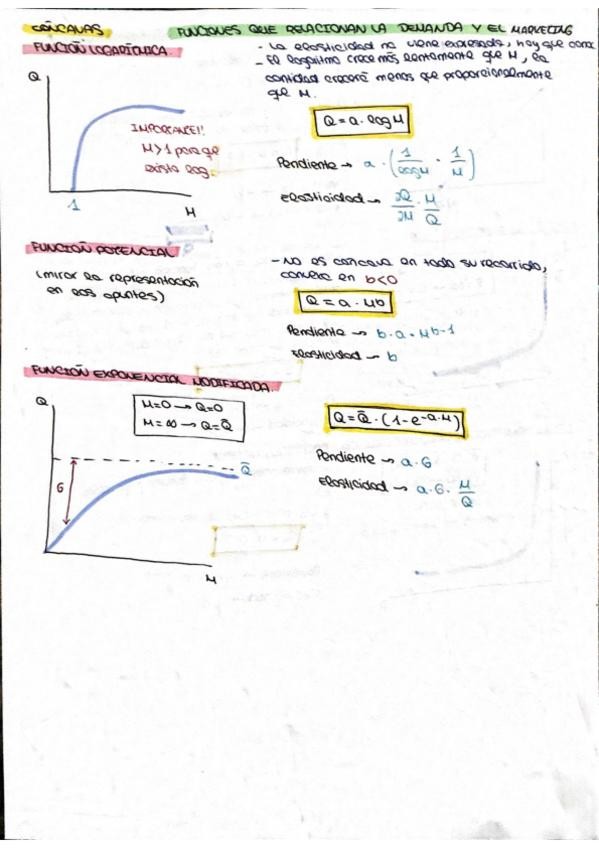 CÓNCAVAS
FUNCIONES QUE RELACIONAN LA DEMANDA Y EL MARKETING
FUNCIÓN LOGARÍTMICA
- La elasticidad no viene expresada, hay que
- El logaritmo crece más lentamente que M, la
cantidad crecerá menos que proporcionalmente
que M.
Q
IMPORTANTE!!
M>1 para que
exista log.
1
M
Q = a · log M
Pendiente → a · (1/log M · 1/M)
Elasticidad → ∂Q/∂M · M/Q
FUNCIÓN POTENCIAL
(mirar la representación
en los apuntes)
- No es cóncava en todo su recorrido,
convexa en b<0
Q = a · M^b
Pendiente → b · a · M^b-1
Elasticidad → b
FUNCIÓN EXPONENCIAL MODIFICADA
Q
M=0 → Q=0
M=∞ → Q=Q̄
Q̄
G
M
Q=Q̄ · (1-e^-a·M)
Pendiente → a·G
Elasticidad → a·G · M/Q